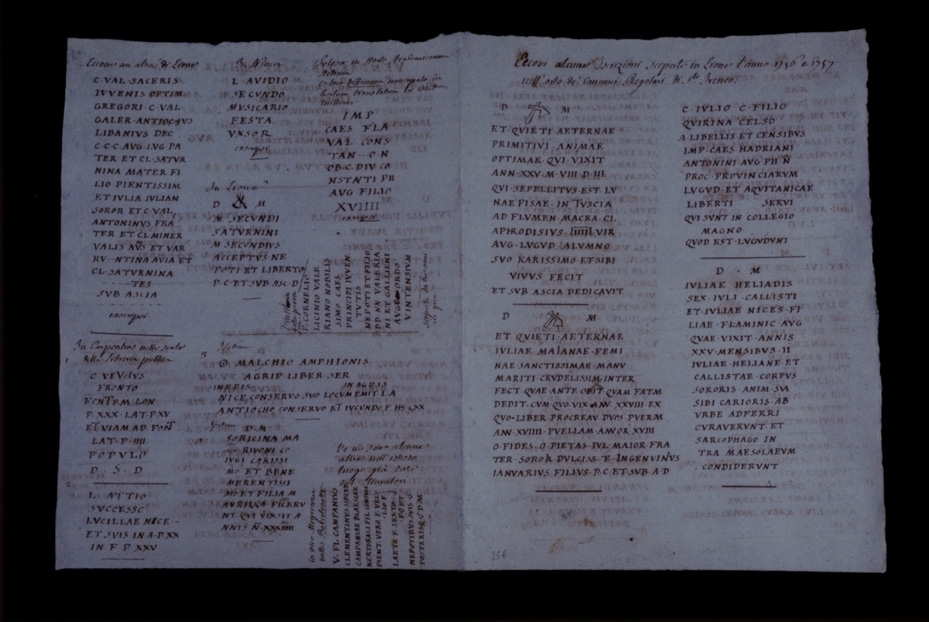 C·VAL·SACERIS
IVVENIS OPTIM
GREGORI·C·VAL
GALER·ANTIOCHVS
LIBANIVS DEC
C·C·C·AVG·LVG PA
TER ET CL·SATVR
NINA MATER FI
LIO PIENTISSIM
ET IVLIA IVLIAN
SOROR ET C·VAL
ANTONINVS FRA
TER ET CL·MINER
VALIS AVS ET VAR
NTINA AVIA ET
CL·SATVRNINA
TES
SVB ASCIA
L·AVIDIO
SECVNDO
MVSICARIO
FESTA
VXSOR
In Lione
D & M
M·SECVNDI
SATVRNINI
M·SECVNDIVS
ACCEPTVS NE
POTI ET LIBERTO
P·C·ET·SVB·ASC·D
IMP
CAES FLA
VAL CONS
TAN··O·N
OB·C·DIV·CO
NSTNTI PII
AVG·FILIO
XVIIII
P·CORNELIO
LICINIO VALE
RIANO NOBILIS
SIMO CAES
PRINCIPI IVVEN
TVTIS
NEPOTI ET FILIO
DD·NN·VALERIA
NI ET GALLIENI
AVGG·ORDO
VINTENSIVM
In Carpentras nella scala
della libreria publica
C·VEVIVS
FRONTO
FONTEM·LON
P·XXX·LAT·P·XV
ET·VIAM·AD·FONT
LAT·P·IIII
POPVLO
D·S·D
L·ATTIO
SVCCESSO
LVCILLAE NICE
ET·SVIS IN A·P·XX
IN F·P XXV
MALCHIO AMPHIONIS
AGRIP·LIBER·SER
IN AGRIS
NICE CONSERVO SVO LOCVM EMIT LA
ANTIOCHO CONSERVO ET IVCVNDO F HS CXX
D M
SORICINA MA
RIVONI CO
IVGI CARISSI
MO ET BENE
MERENTISSI
MO ET FILIA M
AVRILIA FICERV
NT QVI VIXSIT A
NNIS N·XXXIIII
V·F·L·CAMPANIVS
CLEMENTINVS·SIBI
CAMPANIAE MAXIMAE
LAETO F SEXTO F
NEPOTIBVS·VIVIS·
POSTERISQ·D·M
Eccovi alcune Iscrizioni scoperte in Lione l'anno 1756 e 1757
nell'orto de' Canonici Regolari di Sto Ireneo.
D M
ET·QVIETI·AETERNAE
PRIMITIVI ANIMAE
OPTIMAE QVI·VIXIT
ANN·XXV·M·VIII·D·III
QVI·SEPELLITVS·EST·LV
NAE PISAE·IN TVSCIA
AD FLVMEN·MACRA·CL·
APHRODISIVS IIIIII VIR
AVG·LVGVD·ALVMNO
SVO KARISSIMO·ET·SIBI
VIVVS FECIT
ET·SVB·ASCIA·DEDICAVIT
D M
ET QVIETI AETERNAE
IVLIAE MAIANAE·FEMI
NAE·SANCTISSIMAE MANV
MARITI CRVDELISSIM INTER
FECT·QVAE·ANTE·OBIT QVAM FATM
DEDIT·CVM QVO·VIX·ANN·XXVIII·EX
QVO·LIBER·PROCREAV·DVOS·PVERM
ANN·XVIIII·PVELLAM·ANOR·XVIII
O FIDES·O PIETAS·IVL·MAIOR·FRA
TER SOROR·DVLCISS·E·INGENVINVS
IANVARIVS FILIVS·P·C·ET·SVB·A·D
C·IVLIO·C·FILIO
QVIRINA CELSO
A LIBELLIS ET CENSIBVS
IMP·CAES·HADRIANI
ANTONINI·AVG·PII N
PROC·PROVINCIARVM
LVGVD·ET·AQVITANICAE
LIBERTI SERVI
QVI SVNT IN COLLEGIO
MAGNO
QVOD EST·LVGVDVNI
D·M
IVLIAE HELIADIS
SEX·IVLI·CALLISTI
ET·IVLIAE·NICES·FI
LIAE·FLAMINIC·AVG
QVAE·VIXIT·ANNIS
XXV·MENSIBVS·II
IVLIAE·HELIANE·ET
CALLISTAE·CORPVS
SORORIS·ANIM·SVA
SIBI CARIORIS·AB
VRBE ADFERRI
CVRAVERVNT·ET
SARCOPHAGO·IN
TRA MAESOLAEVM
CONDIDERVNT
256